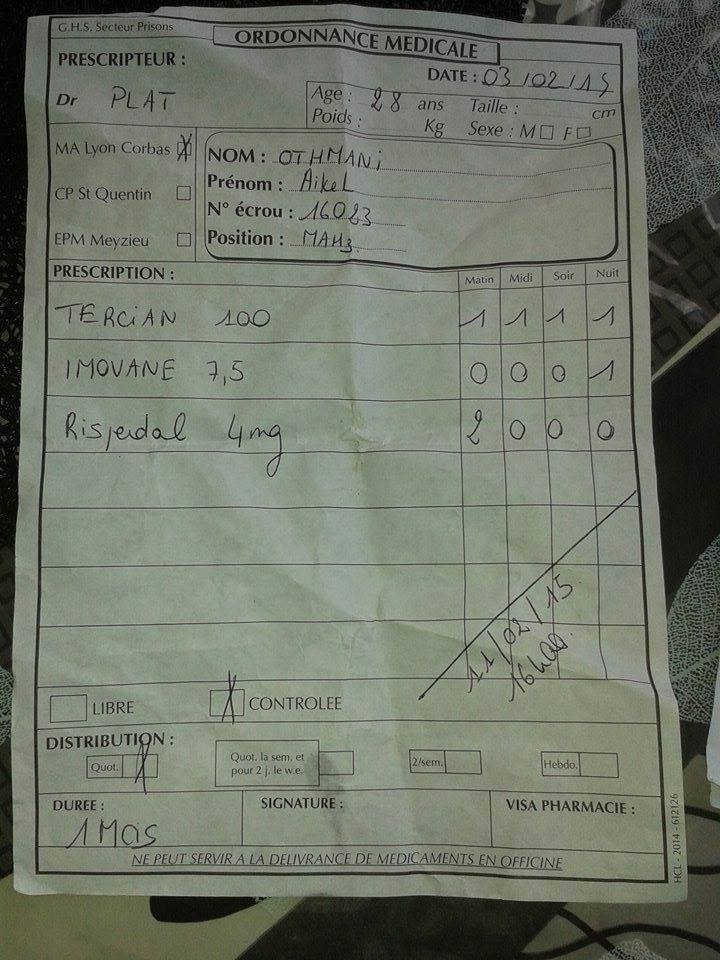 G.H.S. Secteur Prisons
ORDONNANCE MEDICALE
PRESCRIPTEUR :
DATE : 03/02/15
Dr PLAT
Age : 28 ans Taille : cm
Poids : Kg Sexe : M F
MA Lyon Corbas X
CP St Quentin
EPM Meyzieu
NOM : OTHMANi
Prénom : Aikel
N° écrou : 16023
Position : MAH3
PRESCRIPTION : Matin Midi Soir Nuit
TERCiAN 100 1 1 1 1
IMOVANE 7,5 0 0 0 1
Risperdal 4mg 2 0 0 0
11/02/15
16h00
LIBRE X CONTROLEE
DISTRIBUTION :
Quot. X Quot. la sem. et pour 2 j. le w.e. 2/sem. Hebdo.
DUREE : SIGNATURE : VISA PHARMACIE :
1 Mois
NE PEUT SERVIR A LA DELIVRANCE DE MEDICAMENTS EN OFFICINE
HCL - 2014 - 612126